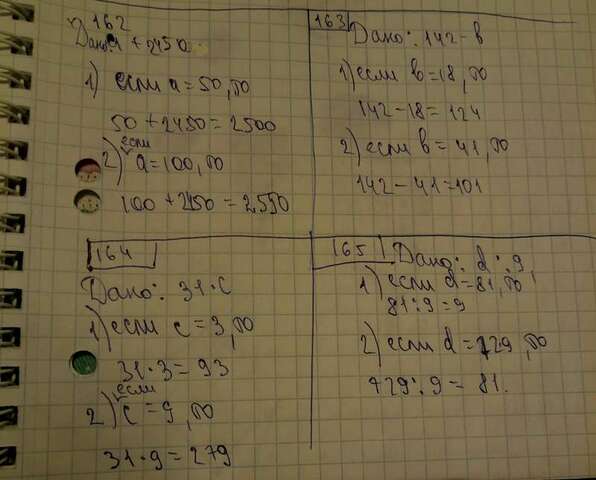 162
Дано: a + 2450.
1) если a = 50, то
50 + 2450 = 2500
если
2) a = 100, то
100 + 2450 = 2550
163
Дано: 142 - b
1) если b = 18, то
142 - 18 = 124
2) если b = 41, то
142 - 41 = 101
164
Дано: 31 · c
1) если c = 3, то
31 · 3 = 93
если
2) c = 9, то
31 · 9 = 279
165
Дано: d : 9,
1) если d = 81, то
81 : 9 = 9
2) если d = 729, то
729 : 9 = 81.